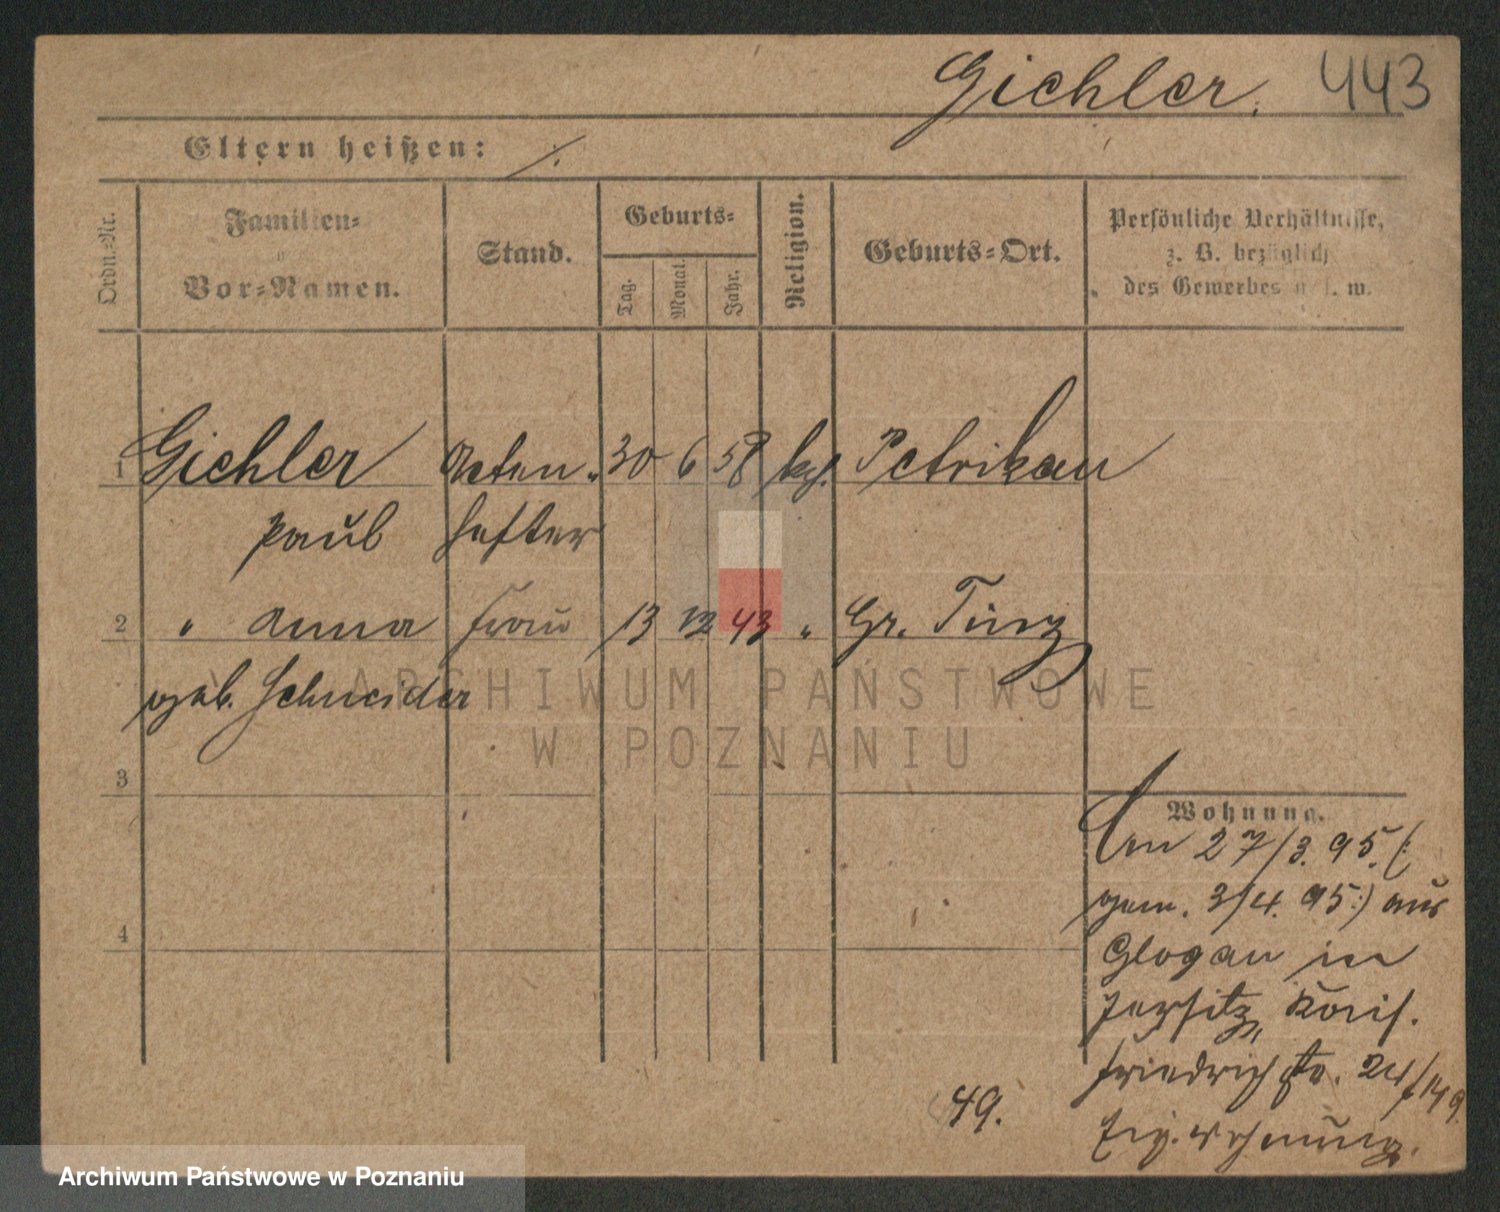 Gichler. 443
Eltern heißen: ./.
Ordn.-Nr.
Familien-
u
Vor-Namen.
Stand.
Geburts-
Tag.
Monat.
Jahr.
Religion.
Geburts-Ort.
Persönliche Verhältnisse,
z. B. bezüglich
des Gewerbes u. s. w.
1 Gichler Acten- 30 6 58 kz. Petrikau
Paul hefter
2 " Anna Frau 13 12 43 " Gr. Tinz
geb. Schneider
3
4
Wohnung.
Am 27/3. 95. (:
gem. 3/4. 95:) aus
Glogau in
Jersitz,
Friedrichstr. 24/149
Eig. Wohnung.
49.
ARCHIWUM PAŃSTWOWE
W POZNANIU
Archiwum Państwowe w Poznaniu